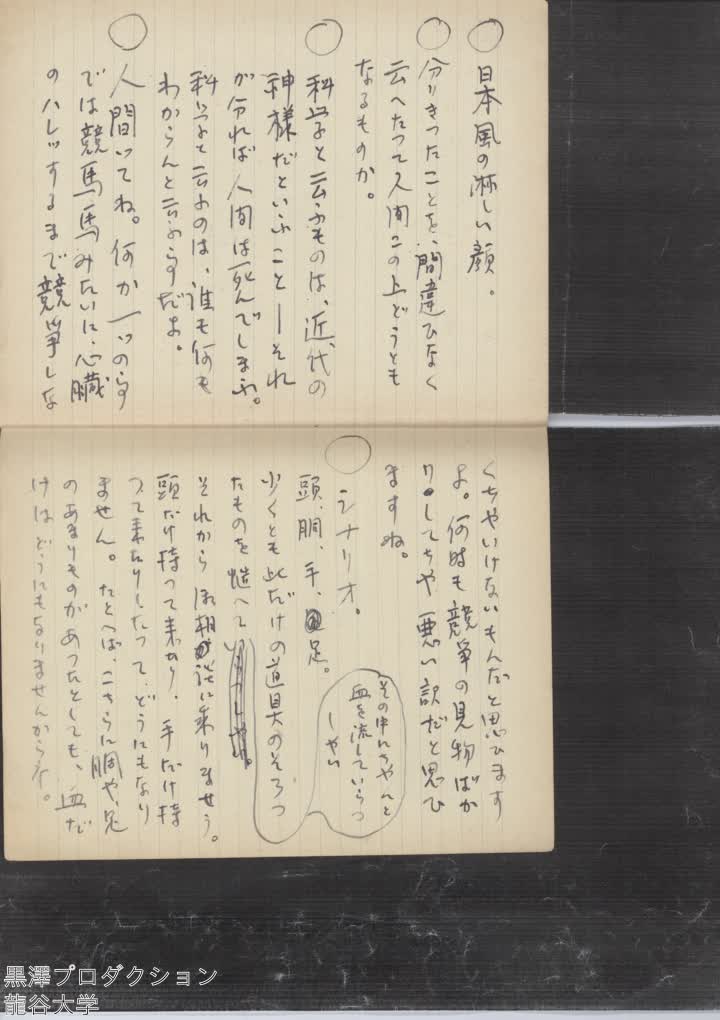 ○ 日本風の淋しい顔。
○ 分りきつたことを、間違ひなく
云へたつて人間この上どうとも
なるものか。
○ 科学と云ふものは、近代の
神様だといふこと―それ
が分れば人間は死んでしまふ。
科学と云ふのは、誰も何も
わからんと云ふ らすだよ。
○ 人間つてね。何か一つの らす
では競馬馬みたいに、心臓
のハレツするまで競争しな
くちやいけないもんだと思ひます
よ。何時も競争の見物ばか
りしてちや悪い訳だと思ひ
ますね。
○ シナリオ。
頭、胴、手、足。
少くとも此だけの道具のそろつ
たものを揃へて
その中にちやんと
血を流していらつ
しやい
それから御相談に乗りませう。
頭だけ持つて来たり、手だけ持
つて来たりしたつて、どうにもなり
ません。たとへば、こちらに胴や、足
のあまりものがあつたとしても、血だ
けはどうにもなりませんからな。
黒澤プロダクション
龍谷大学